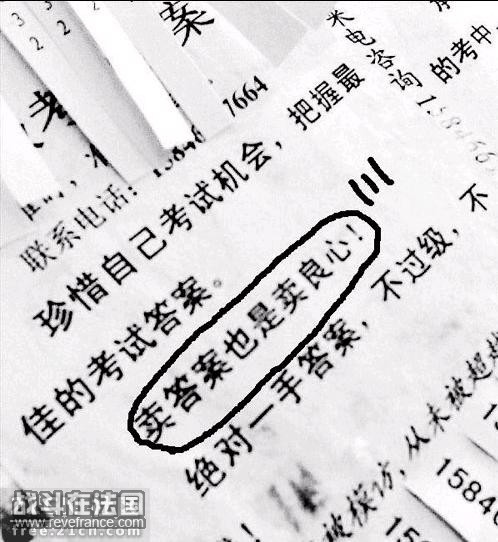 案
考
7664
来电咨询15846
的考中,
联系电话:
珍惜自己考试机会,把握最
佳的考试答案。
卖答案也是卖良心!
绝对一手答案,不过级,不
从未被超越
被模仿,
1584
15846
战斗在法国
www.revefrance.com
free.21cn.com